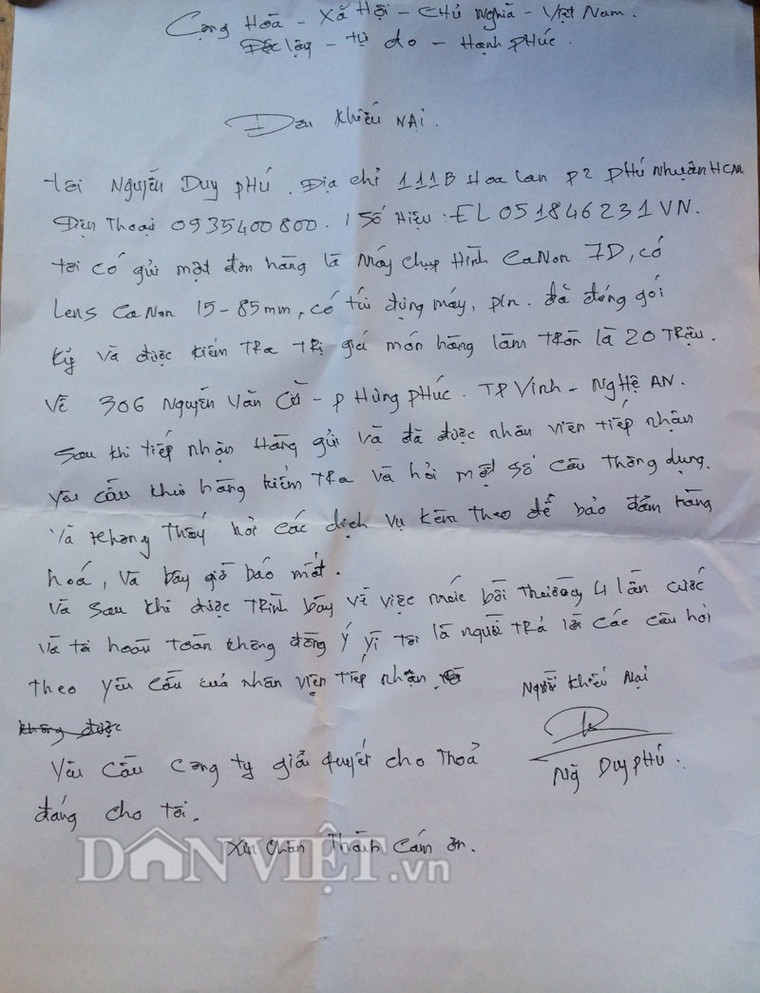 Cộng Hoà - Xã Hội - Chủ Nghĩa - Việt Nam.
Độc lập - Tự do - Hạnh phúc.
Đơn khiếu NẠi.
Tôi Nguyễn Duy phú. Địa chỉ 111B Hoa lan p2 phú Nhuận HCM
Điện Thoại 0935400800. 1 Số Hiệu: EL051846231VN.
tôi có gửi một đơn hàng là Máy chụp Hình CaNon 7D, có
Lens CaNon 15-85mm, có túi đựng máy, pin. đã đóng gói
Kỹ và được kiểm TRa TRị giá món hàng làm TRòn là 20 TRiệu.
Về 306 Nguyễn Văn Cừ - p Hưng phúc. TP Vinh - Nghệ AN.
Sau khi tiếp nhận Hàng gửi và đã được nhân viên tiếp nhận
yêu cầu kho hàng kiểm TRa và hỏi một số câu Thông dụng.
Và không Thấy hỏi các dịch vụ kèm Theo để bảo đảm hàng
hoá, và bây giờ báo mất.
Và Sau khi được TRình bày về việc mức bồi Thường 4 lần cước
Và tôi hoàn toàn không đồng ý vì tôi là người TRả lời các câu hỏi
Theo yêu cầu của nhân viên tiếp nhận.
Người khiếu Nại
không được
Yêu cầu công ty giải quyết cho Thoả
Ng Duy phú.
đáng cho Tôi.
Xin chân Thành Cám ơn.
DÂN VIỆT.vn